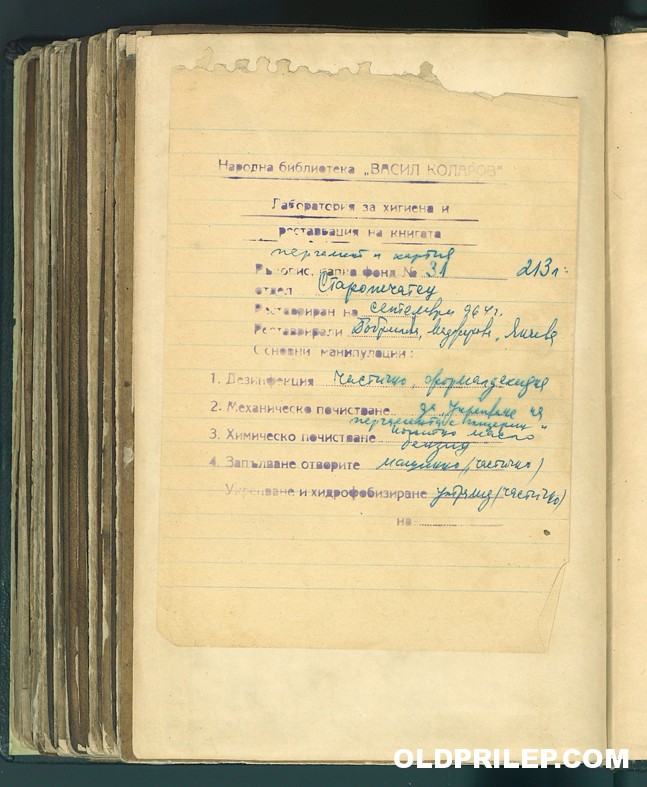 Народна библиотека „ВАСИЛ КОЛАРОВ"
Лаборатория за хигиена и
реставрация на книгата
пергамент и хартия
Ръкопис. папка фонд № 31 213 г.
отдел Старопечатен
Реставриран на септември 964 г.
Реставрирали Янчева
Основни манипулоции:
1. Дезинфекция частично,
2. Механическо почистване за укрепване на
3. Химическо почистване масло
бензин
4. Запълване отворите машинно (частично)
Укрепване и хидрофобизиране (частично)
на
OLDPRILEP.COM